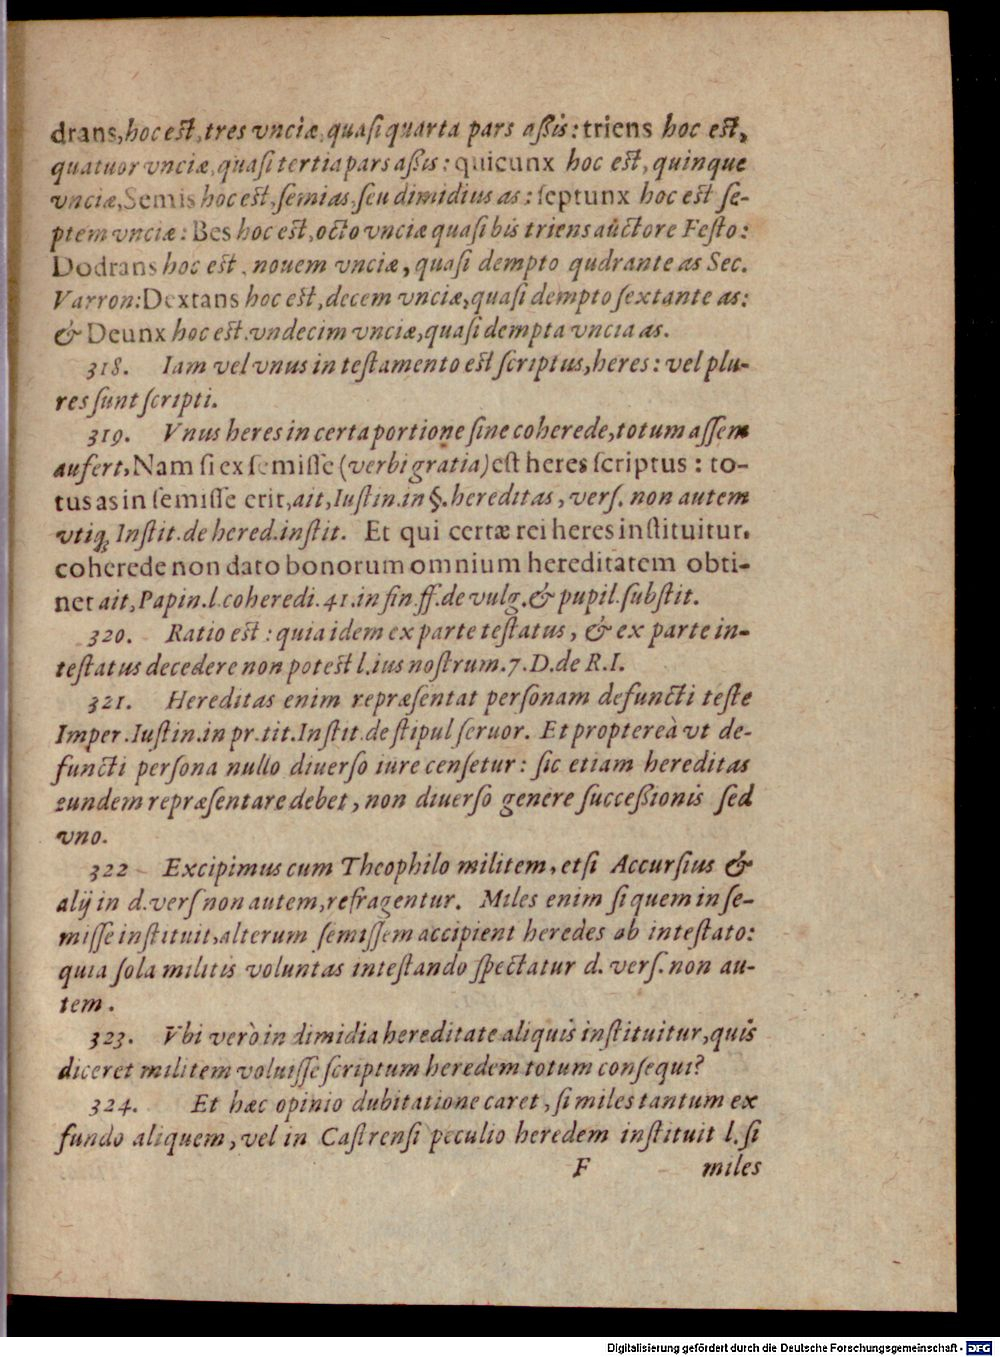 drans, hoc est, tres vnciæ, quasi quarta pars aſſis: triens hoc est,
quatuor vnciæ, quaſi tertia pars aſſis: quicunx hoc est, quinque
vnciæ, Semis hoc est, ſemias, ſeu dimidius as: ſeptunx hoc est ſe-
ptem vnciæ: Bes hoc est, octo vnciæ quaſi bis triens auctore Feſto:
Dodrans hoc est, nouem vnciæ, quaſi dempto qudrante as Sec.
Varron: Dextans hoc est, decem vnciæ, quaſi dempto ſextante as:
& Deunx hoc est. vndecim vnciæ, quaſi dempta vncia as.
318. Iam vel vnus in teſtamento est ſcriptus, heres: vel plu-
res ſunt ſcripti.
319. Vnus heres in certa portione ſine coherede, totum aſſem
aufert, Nam ſi ex ſemiſſe (verbi gratia) est heres ſcriptus: to-
tus as in ſemiſſe erit, ait, Iuſtin. in §. hereditas, verſ. non autem
vtiq; Inſtit. de hered. inſtit. Et qui certæ rei heres inſtituitur.
coherede non dato bonorum omnium hereditatem obti-
net ait, Papin. l. coheredi. 41. in fin. ff. de vulg. & pupil. ſubſtit.
320. Ratio est: quia idem ex parte teſtatus, & ex parte in-
teſtatus decedere non potest l. ius noſtrum. 7. D. de R. I.
321. Hereditas enim repræſentat perſonam defuncti teſte
Imper. Iuſtin. in pr. tit. Inſtit. de ſtipul ſeruor. Et propterea̾ vt de-
functi perſona nullo diuerſo iure cenſetur: ſic etiam hereditas
eundem repræſentare debet, non diuerſo genere ſucceſſionis ſed
vno.
322 Excipimus cum Theophilo militem, etſi Accurſius &
alij in d. verſ non autem, refragentur. Miles enim ſi quem in ſe-
miſſe inſtituit, alterum ſemiſſem accipient heredes ab inteſtato:
quia ſola militis voluntas inteſtando ſpectatur d. verſ. non au-
tem.
323. Vbi verò in dimidia hereditate aliquis inſtituitur, quis
diceret militem voluiſſe ſcriptum heredem totum conſequi?
324. Et hæc opinio dubitatione caret, ſi miles tantum ex
fundo aliquem, vel in Caſtrenſi peculio heredem inſtituit l. ſi
F miles
Digitalisierung gefördert durch die Deutsche Forschungsgemeinschaft - DFG